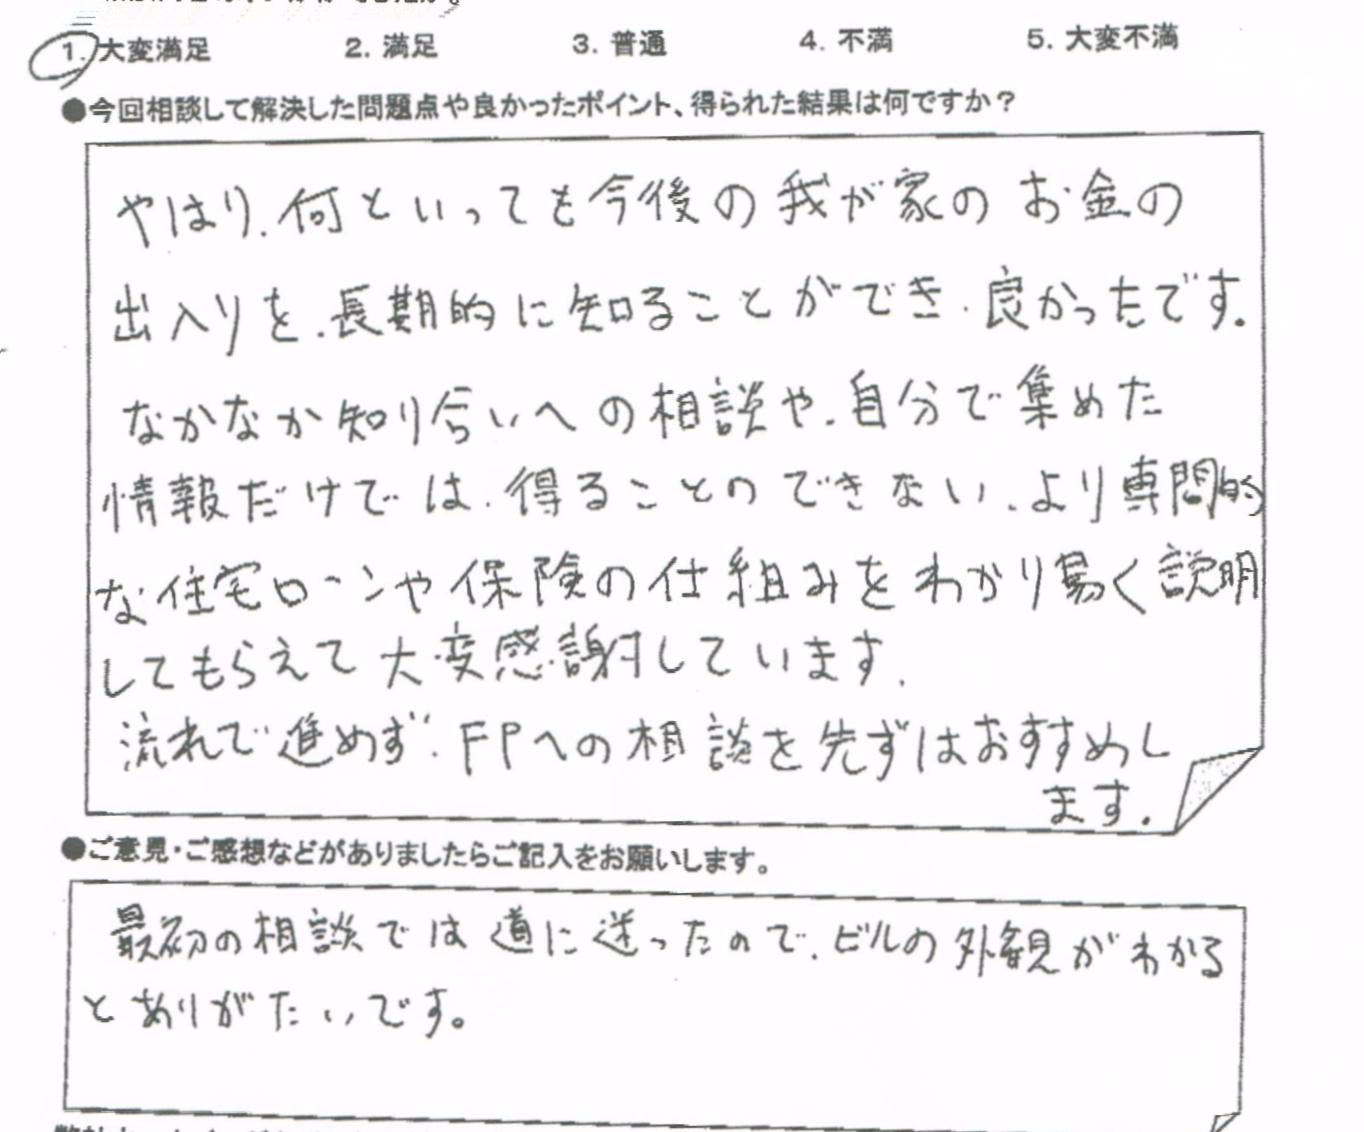 1. 大変満足 2. 満足 3. 普通 4. 不満 5. 大変不満
●今回相談して解決した問題点や良かったポイント、得られた結果は何ですか？
やはり、何といっても今後の我が家のお金の
出入りを、長期的に知ることができ、良かったです。
なかなか知り合いへの相談や、自分で集めた
情報だけでは、得ることのできない、より専門的
な住宅ローンや保険の仕組みをわかり易く説明
してもらえて大変感謝しています。
流れで進めず、FPへの相談を先ずはおすすめし
ます。
●ご意見・ご感想などがありましたらご記入をお願いします。
最初の相談では道に迷ったので、ビルの外観がわかる
とありがたいです。